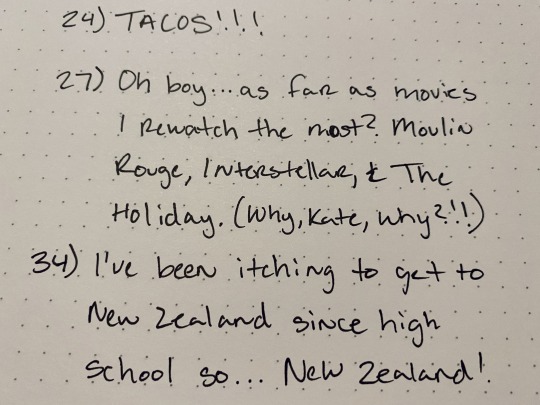 24) TACOS!!!
27) Oh boy...as far as movies
I rewatch the most? Moulin
Rouge, Interstellar, & The
Holiday. (Why, Kate, why?!!)
34) I've been itching to get to
New Zealand since high
school so... New Zealand!